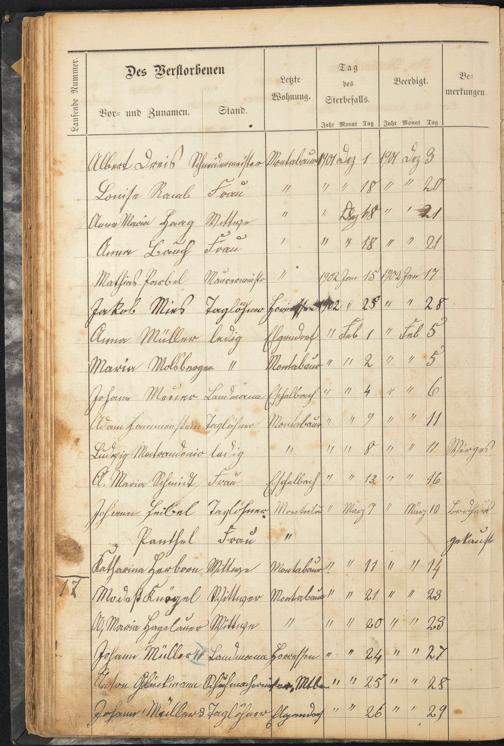 Laufende Nummer.
Des Verstorbenen
Vor- und Zunamen. Stand.
Letzte Wohnung.
Tag des Sterbefalls.
Beerdigt.
Bemerkungen
Jahr Monat Tag Jahr Monat Tag
Albert Dreis Schneidermeister Montabaur 1901 Dez 1 1901 Dez 3
Louise Raab Frau " " " 18 " " 20
Anna Maria Haag Wittwe " " Dez 18 " " 21
Anna Bauch Frau " " " 18 " " 21
Mathias Maurermeister " 1902 Jan 15 1902 Jan 17
Jakob Mies Taglöhner 1902 " 25 " " 28
Anna Müller ledig Elgendorf " Feb 1 " Feb 5
Maria Molsberger " Montabaur " " 2 " " 5
Johann Meurer Landmann Eschelbach " " 4 " " 6
Adam Hannmstein Taglöhner Montabaur " " 9 " " 11
Ludwig ledig " " " 8 " " 11 Wirges
A. Maria Schmidt Frau Eschelbach " " 13 " " 16
Johann Taglöhner Montabaur " März 7 " März 10
Panthel Frau " gekauft
Katharina Herborn Wittwe Montabaur " " 11 " " 14
17 Modest Knögel Wittwer Montabaur " " 21 " " 23
A Maria Hagelauer Wittwe " " " 20 " " 23
Johann Müller II Landmann Horressen " " 24 " " 27
Anton Glückmann Schuhmachermeister, Mtbr " " 25 " " 28
Johann Müller Taglöhner Elgendorf " " 26 " " 29